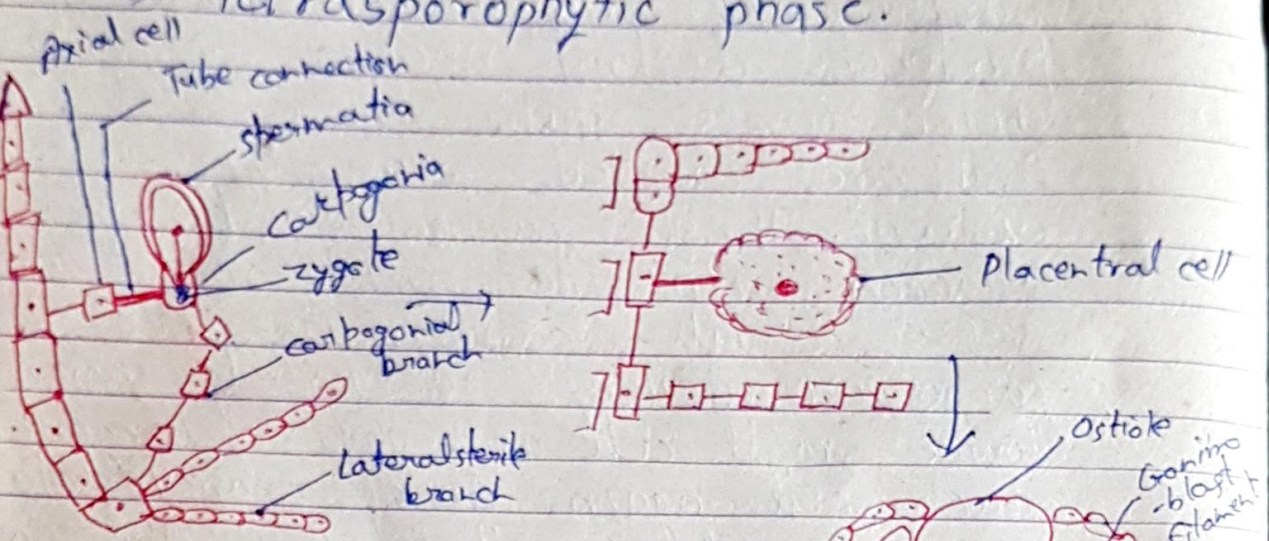 Tetrasporophytic phase.
Axial cell
Tube connection
spermatia
Carpogonia
zygote
carpogonial
branch
Placentral cell
Lateral sterile
branch
Ostiole
Gonimo
-blast
filament